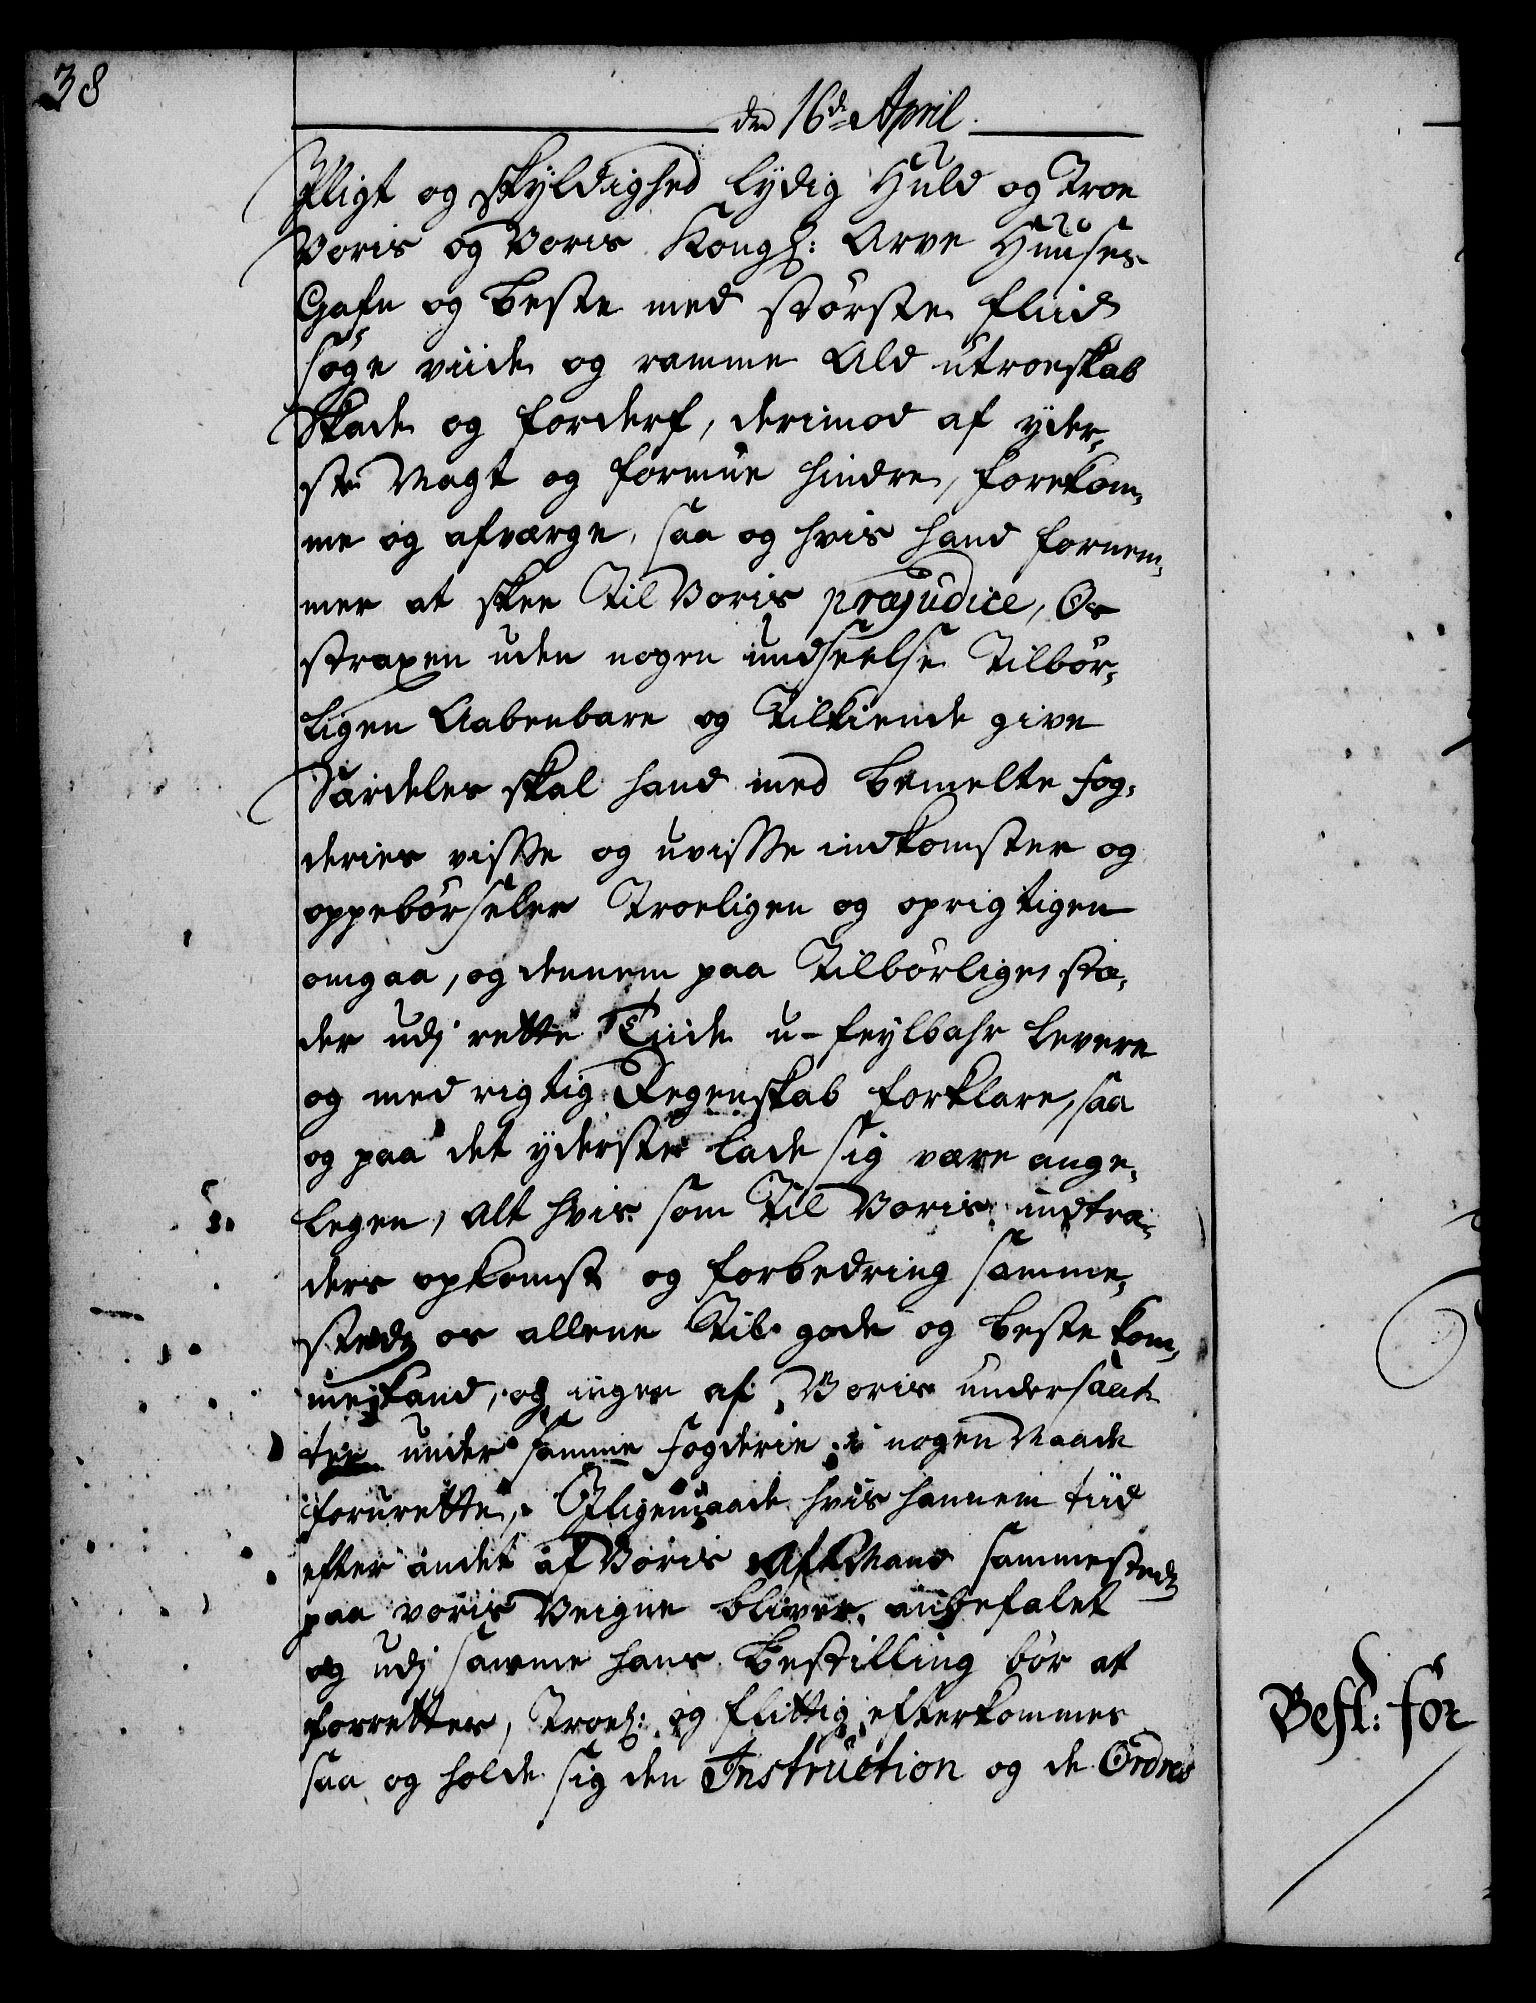 38
den 16de April.
Pligt og skyldighed lydig Huld og Troe
Voris og Voris Kongl: Arve Huuses
Gafn og beste med störste fliid
söge viide og ramme Ald utroeskab
Skade og forderf, derimod af yder,
ste Magt og formue hindre, forekom,
me og afværge, saa og hvis hand fornem,
mer at skee Til Voris præjudice, Os
straxen uden nogen undseelse Tilbör,
ligen Aabenbare og Tilkiende give
Særdeles skal hand med bemelte fog,
deries visse og uvisse indkomster og
oppebörseler Troeligen og oprigtigen
omgaa, og dennem paa Tilbörlige stæ,
der udj rette Tiide u-feylbahr levere
og med rigtig Regenskab forklare, saa
og paa det yderste lade sig være ange,
legen, alt hvis som Til Voris indtra,
ders opkomst og forbedring samme,
stedz os allene Til gode og beste kom,
me kand, og ingen af Voris undersaat
ter under samme fogderie i nogen Maade
forurette, Ligemaade hvis hannem tiid
efter andet af Voris Amtmand sammestedz
paa voris Veigne bliver anbefalet
og udj samme hans bestilling bör at
forrettes, Troel: og flittig efterkommes
saa og holde sig den Instruction og de Ordres
Befl: for